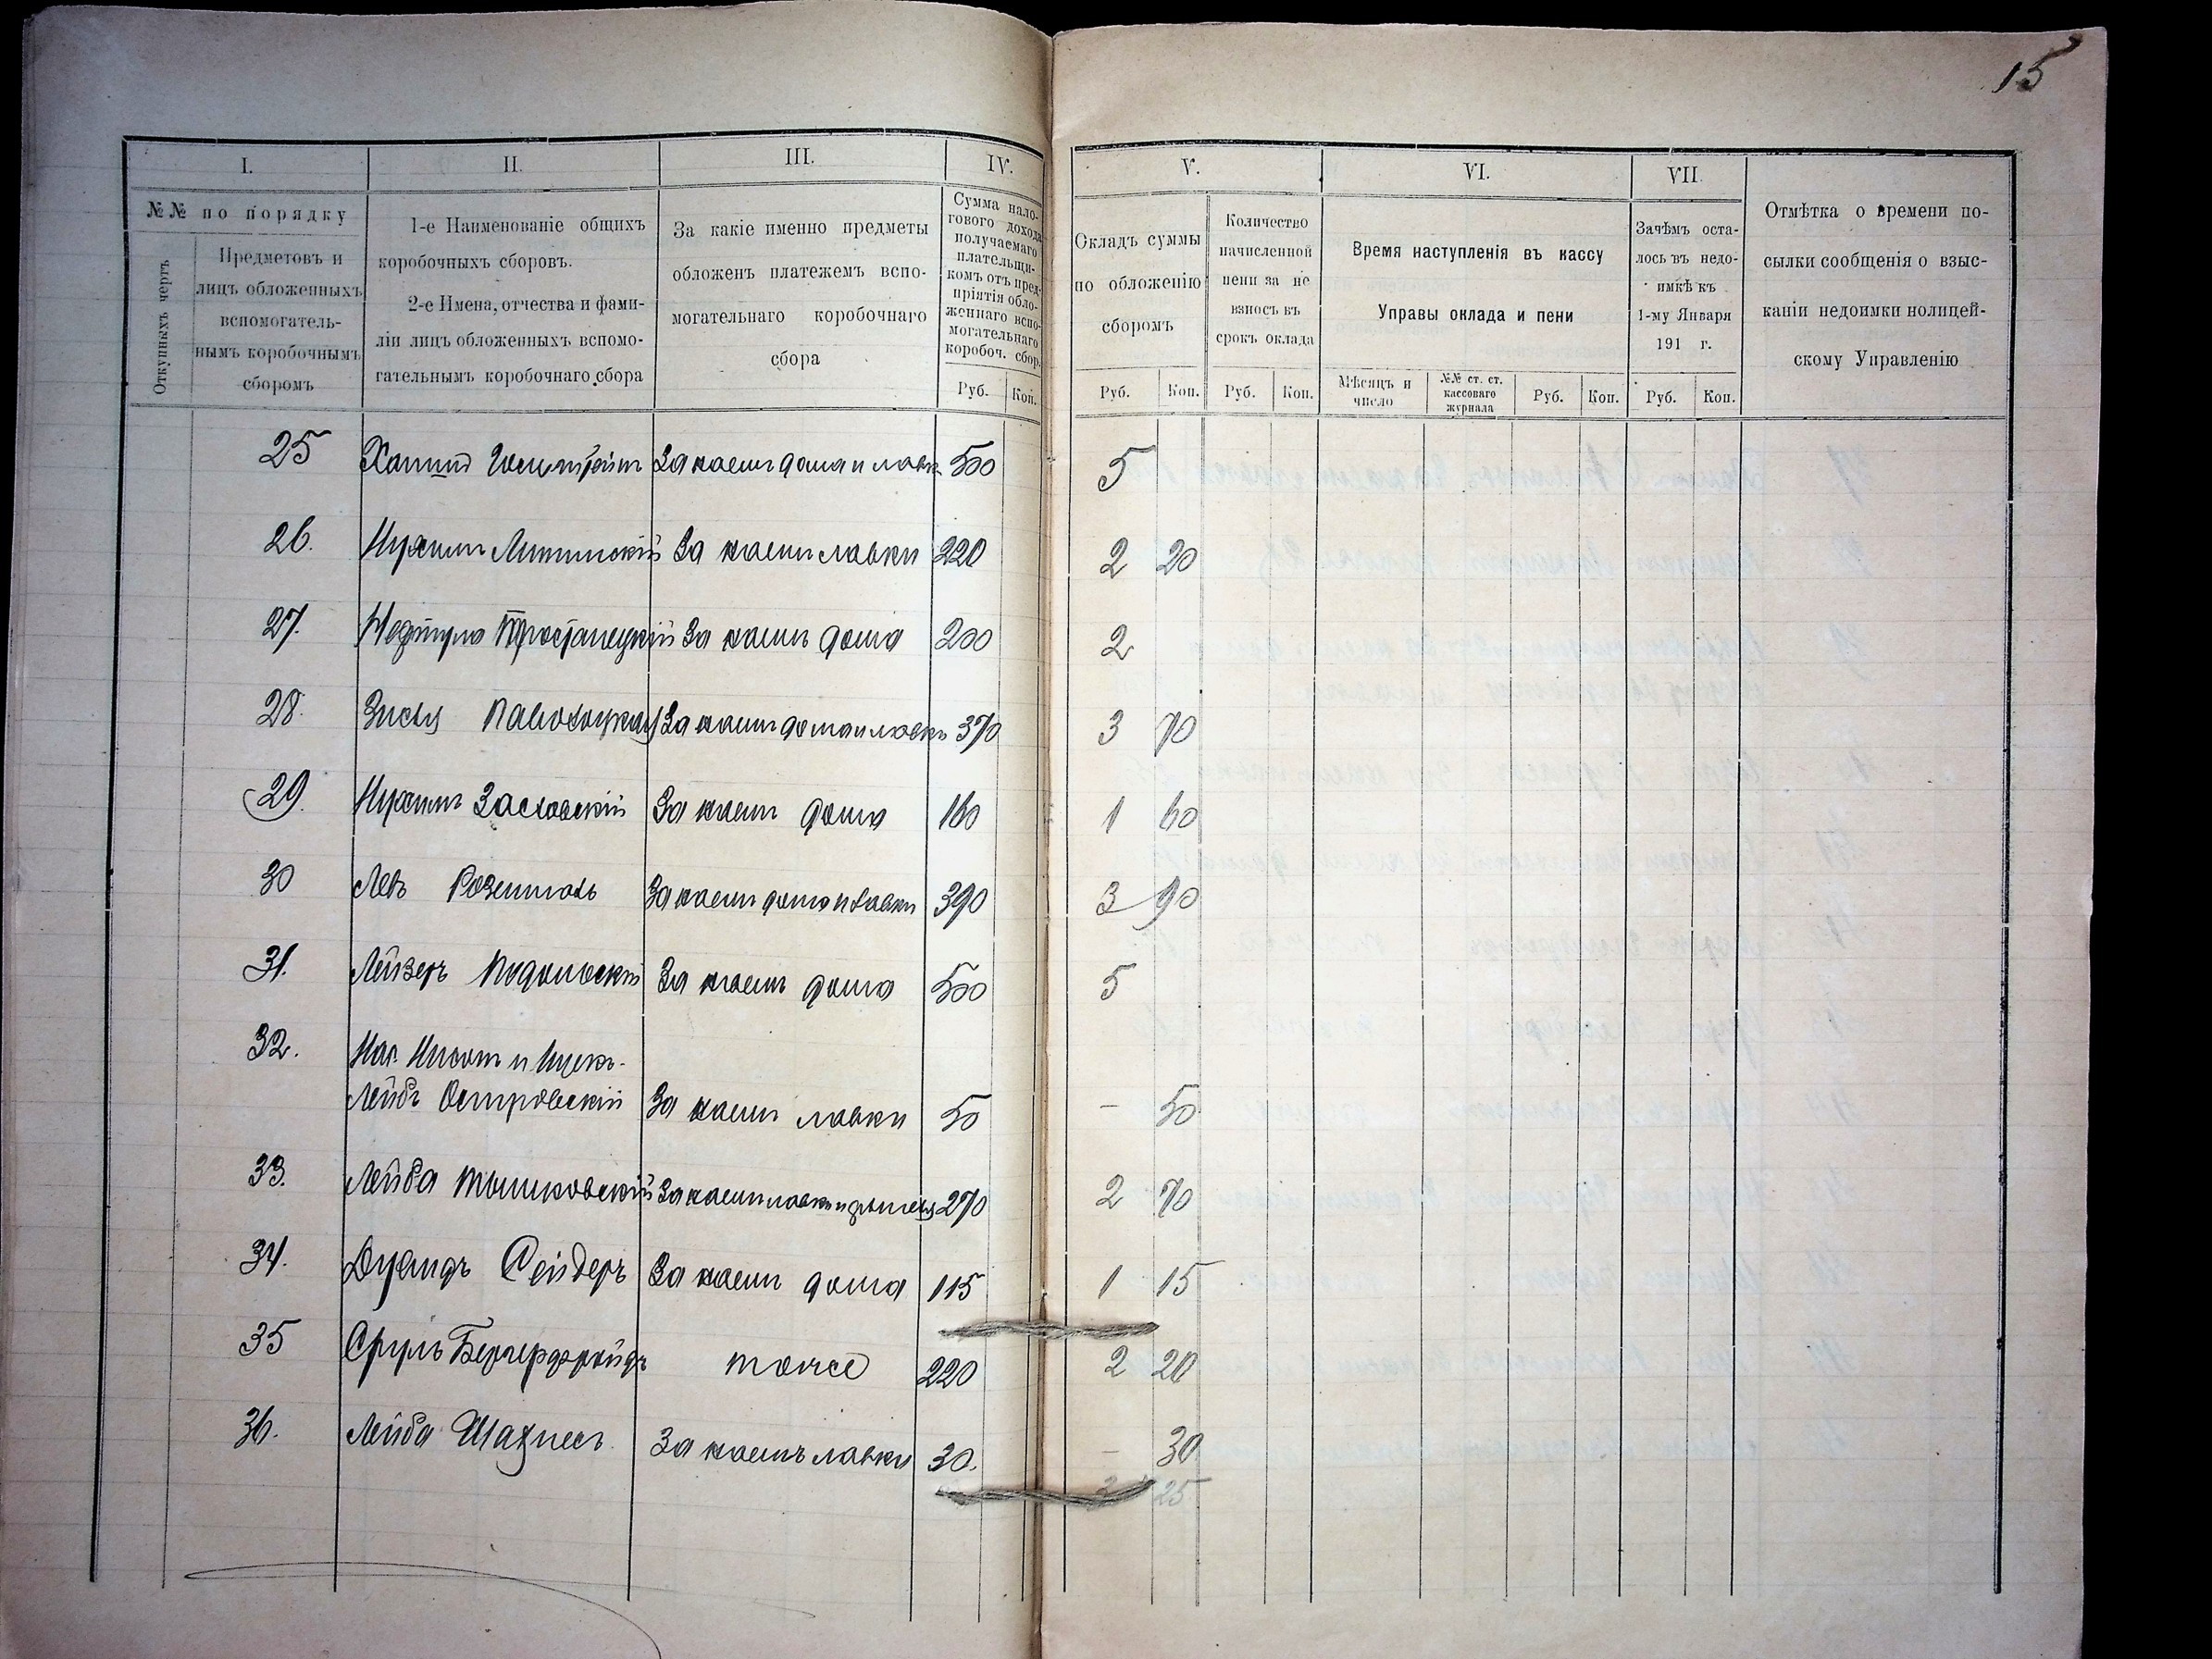 15
I. II. III. IV. V. VI. VII.
№№ по порядку
Откупныхъ чертъ
Предметовъ и
лицъ обложенныхъ
вспомогатель-
нымъ коробочнымъ
сборомъ
1-е Наименованіе общихъ
коробочныхъ сборовъ.
2-е Имена, отчества и фами-
ліи лицъ обложенныхъ вспомо-
гательнымъ коробочнаго сбора
За какіе именно предметы
обложенъ платежемъ вспо-
могательнаго коробочнаго
сбора
Сумма нало-
говаго дохода
получаемаго
плательщи-
комъ отъ пред-
пріятія обло-
женнаго вспо-
могательнаго
коробоч. сбор.
Руб. Коп.
Окладъ суммы
по обложенію
сборомъ
Руб. Коп.
Количество
начисленной
пени за не
взносъ въ
срокъ оклада
Руб. Коп.
Время наступленія въ кассу
Управы оклада и пени
Мѣсяцъ и
число
№№ ст. ст.
кассоваго
журнала
Руб. Коп.
Зачѣмъ оста-
лось въ недо-
имкѣ къ
1-му Января
191 г.
Руб. Коп.
Отмѣтка о времени по-
сылки сообщенія о взыс-
каніи недоимки полицей-
скому Управленію
25 За наемъ дома и лавк 500 5
26. Нухимъ За наемъ лавки 220 2 20
27. За наемъ дома 200 2
28. Зисля За наемъ дома и лавкъ 370 3 70
29. Нухимъ Заславскій За наемъ дома 160 1 60
30 Левъ За наемъ дома и лавки 390 3 90
31. Лейзеръ Подольскій За наемъ дома 500 5
32. Нас. и Ицекъ-
Лейбъ Островскій За наемъ лавки 50 – 50
33. Лейба Тышковскій За наемъ лавки и 270 2 70
34. Сейдеръ За наемъ дома 115 1 15
35 Сруль тоже 220 2 20
36. Лейба Шахнесъ За наемъ лавки 30. – 30
25